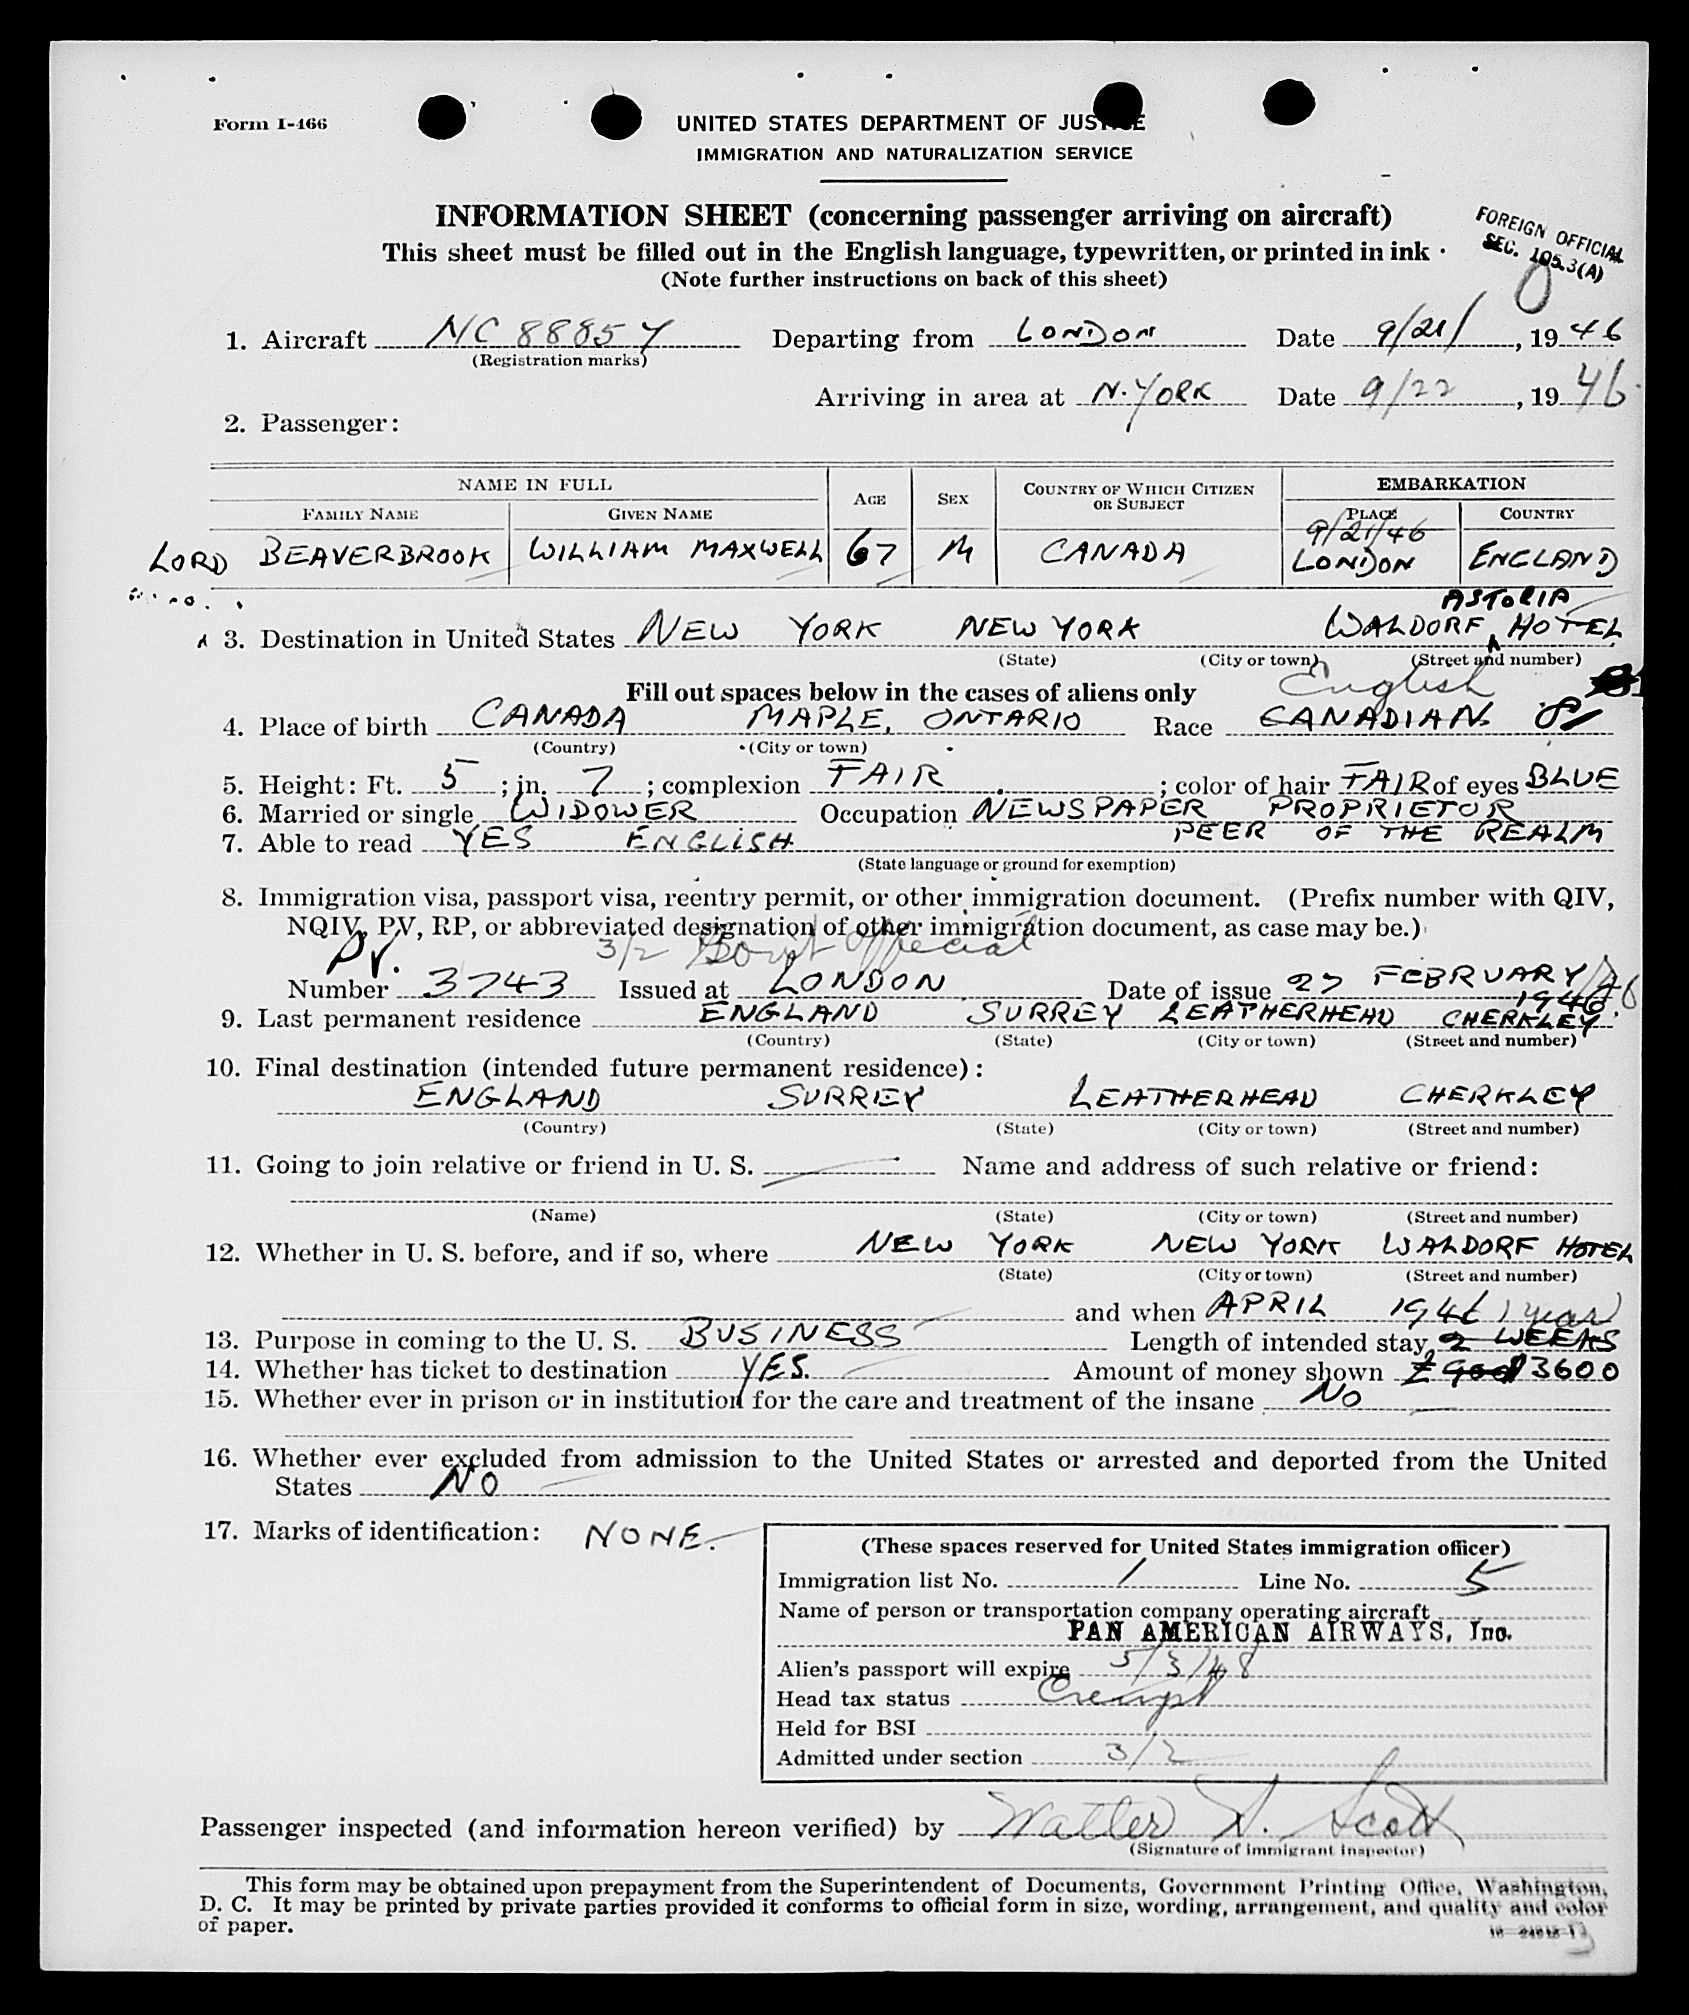 Form I-466
UNITED STATES DEPARTMENT OF JUSTICE
IMMIGRATION AND NATURALIZATION SERVICE
INFORMATION SHEET (concerning passenger arriving on aircraft)
This sheet must be filled out in the English language, typewritten, or printed in ink
(Note further instructions on back of this sheet)
FOREIGN OFFICIAL
SEC. 105.3(A)
1. Aircraft NC 88857 Departing from LONDON Date 9/21/, 1946
(Registration marks)
Arriving in area at N. YORK Date 9/22, 1946
2. Passenger:
NAME IN FULL AGE SEX COUNTRY OF WHICH CITIZEN OR SUBJECT EMBARKATION
FAMILY NAME GIVEN NAME PLACE COUNTRY
9/21/46
LORD BEAVERBROOK WILLIAM MAXWELL 67 M CANADA LONDON ENGLAND
ASTORIA
3. Destination in United States NEW YORK NEW YORK WALDORF HOTEL
(State) (City or town) (Street and number)
Fill out spaces below in the cases of aliens only English
4. Place of birth CANADA MAPLE, ONTARIO Race CANADIAN
(Country) (City or town)
5. Height: Ft. 5; in. 7; complexion FAIR; color of hair FAIR of eyes BLUE
6. Married or single WIDOWER Occupation NEWSPAPER PROPRIETOR
PEER OF THE REALM
7. Able to read YES ENGLISH
(State language or ground for exemption)
8. Immigration visa, passport visa, reentry permit, or other immigration document. (Prefix number with QIV,
NQIV, PV, RP, or abbreviated designation of other immigration document, as case may be.)
PV. 3/2 Gov't Official
Number 3743 Issued at LONDON Date of issue 27 FEBRUARY 1946.
9. Last permanent residence ENGLAND SURREY LEATHERHEAD CHERKLEY
(Country) (State) (City or town) (Street and number)
10. Final destination (intended future permanent residence):
ENGLAND SURREY LEATHERHEAD CHERKLEY
(Country) (State) (City or town) (Street and number)
11. Going to join relative or friend in U. S. Name and address of such relative or friend:
(Name) (State) (City or town) (Street and number)
12. Whether in U. S. before, and if so, where NEW YORK NEW YORK WALDORF HOTEL
(State) (City or town) (Street and number)
and when APRIL 1946 1 year
13. Purpose in coming to the U. S. BUSINESS Length of intended stay 2 WEEKS
14. Whether has ticket to destination YES. Amount of money shown £900 $3600
15. Whether ever in prison or in institution for the care and treatment of the insane NO
16. Whether ever excluded from admission to the United States or arrested and deported from the United
States NO
17. Marks of identification: NONE.
(These spaces reserved for United States immigration officer)
Immigration list No. 1 Line No. 5
Name of person or transportation company operating aircraft
PAN AMERICAN AIRWAYS, Inc.
Alien's passport will expire 5/3/48
Head tax status Exempt
Held for BSI
Admitted under section 3/2
Passenger inspected (and information hereon verified) by Walter W. Scott
(Signature of immigrant inspector)
This form may be obtained upon prepayment from the Superintendent of Documents, Government Printing Office, Washington,
D. C. It may be printed by private parties provided it conforms to official form in size, wording, arrangement, and quality and color
of paper.